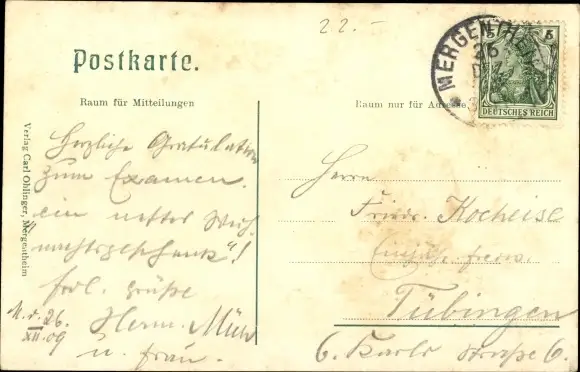 22.-
Postkarte.
Raum für Mitteilungen
Raum nur für Adresse
MERGENTHEIM
26
DEZ
5 5
DEUTSCHES REICH
Verlag Carl Ohlinger, Mergentheim
Herzliche Gratulation
zum Examen.
„ein nettes Weih
nachtsgeschenk"!
frdl. Grüße
Herm.
u. Frau.
M. d. 26.
XII. 09
Herrn
Friedr. Kocheise
Tübingen
6. Karls straße 6.